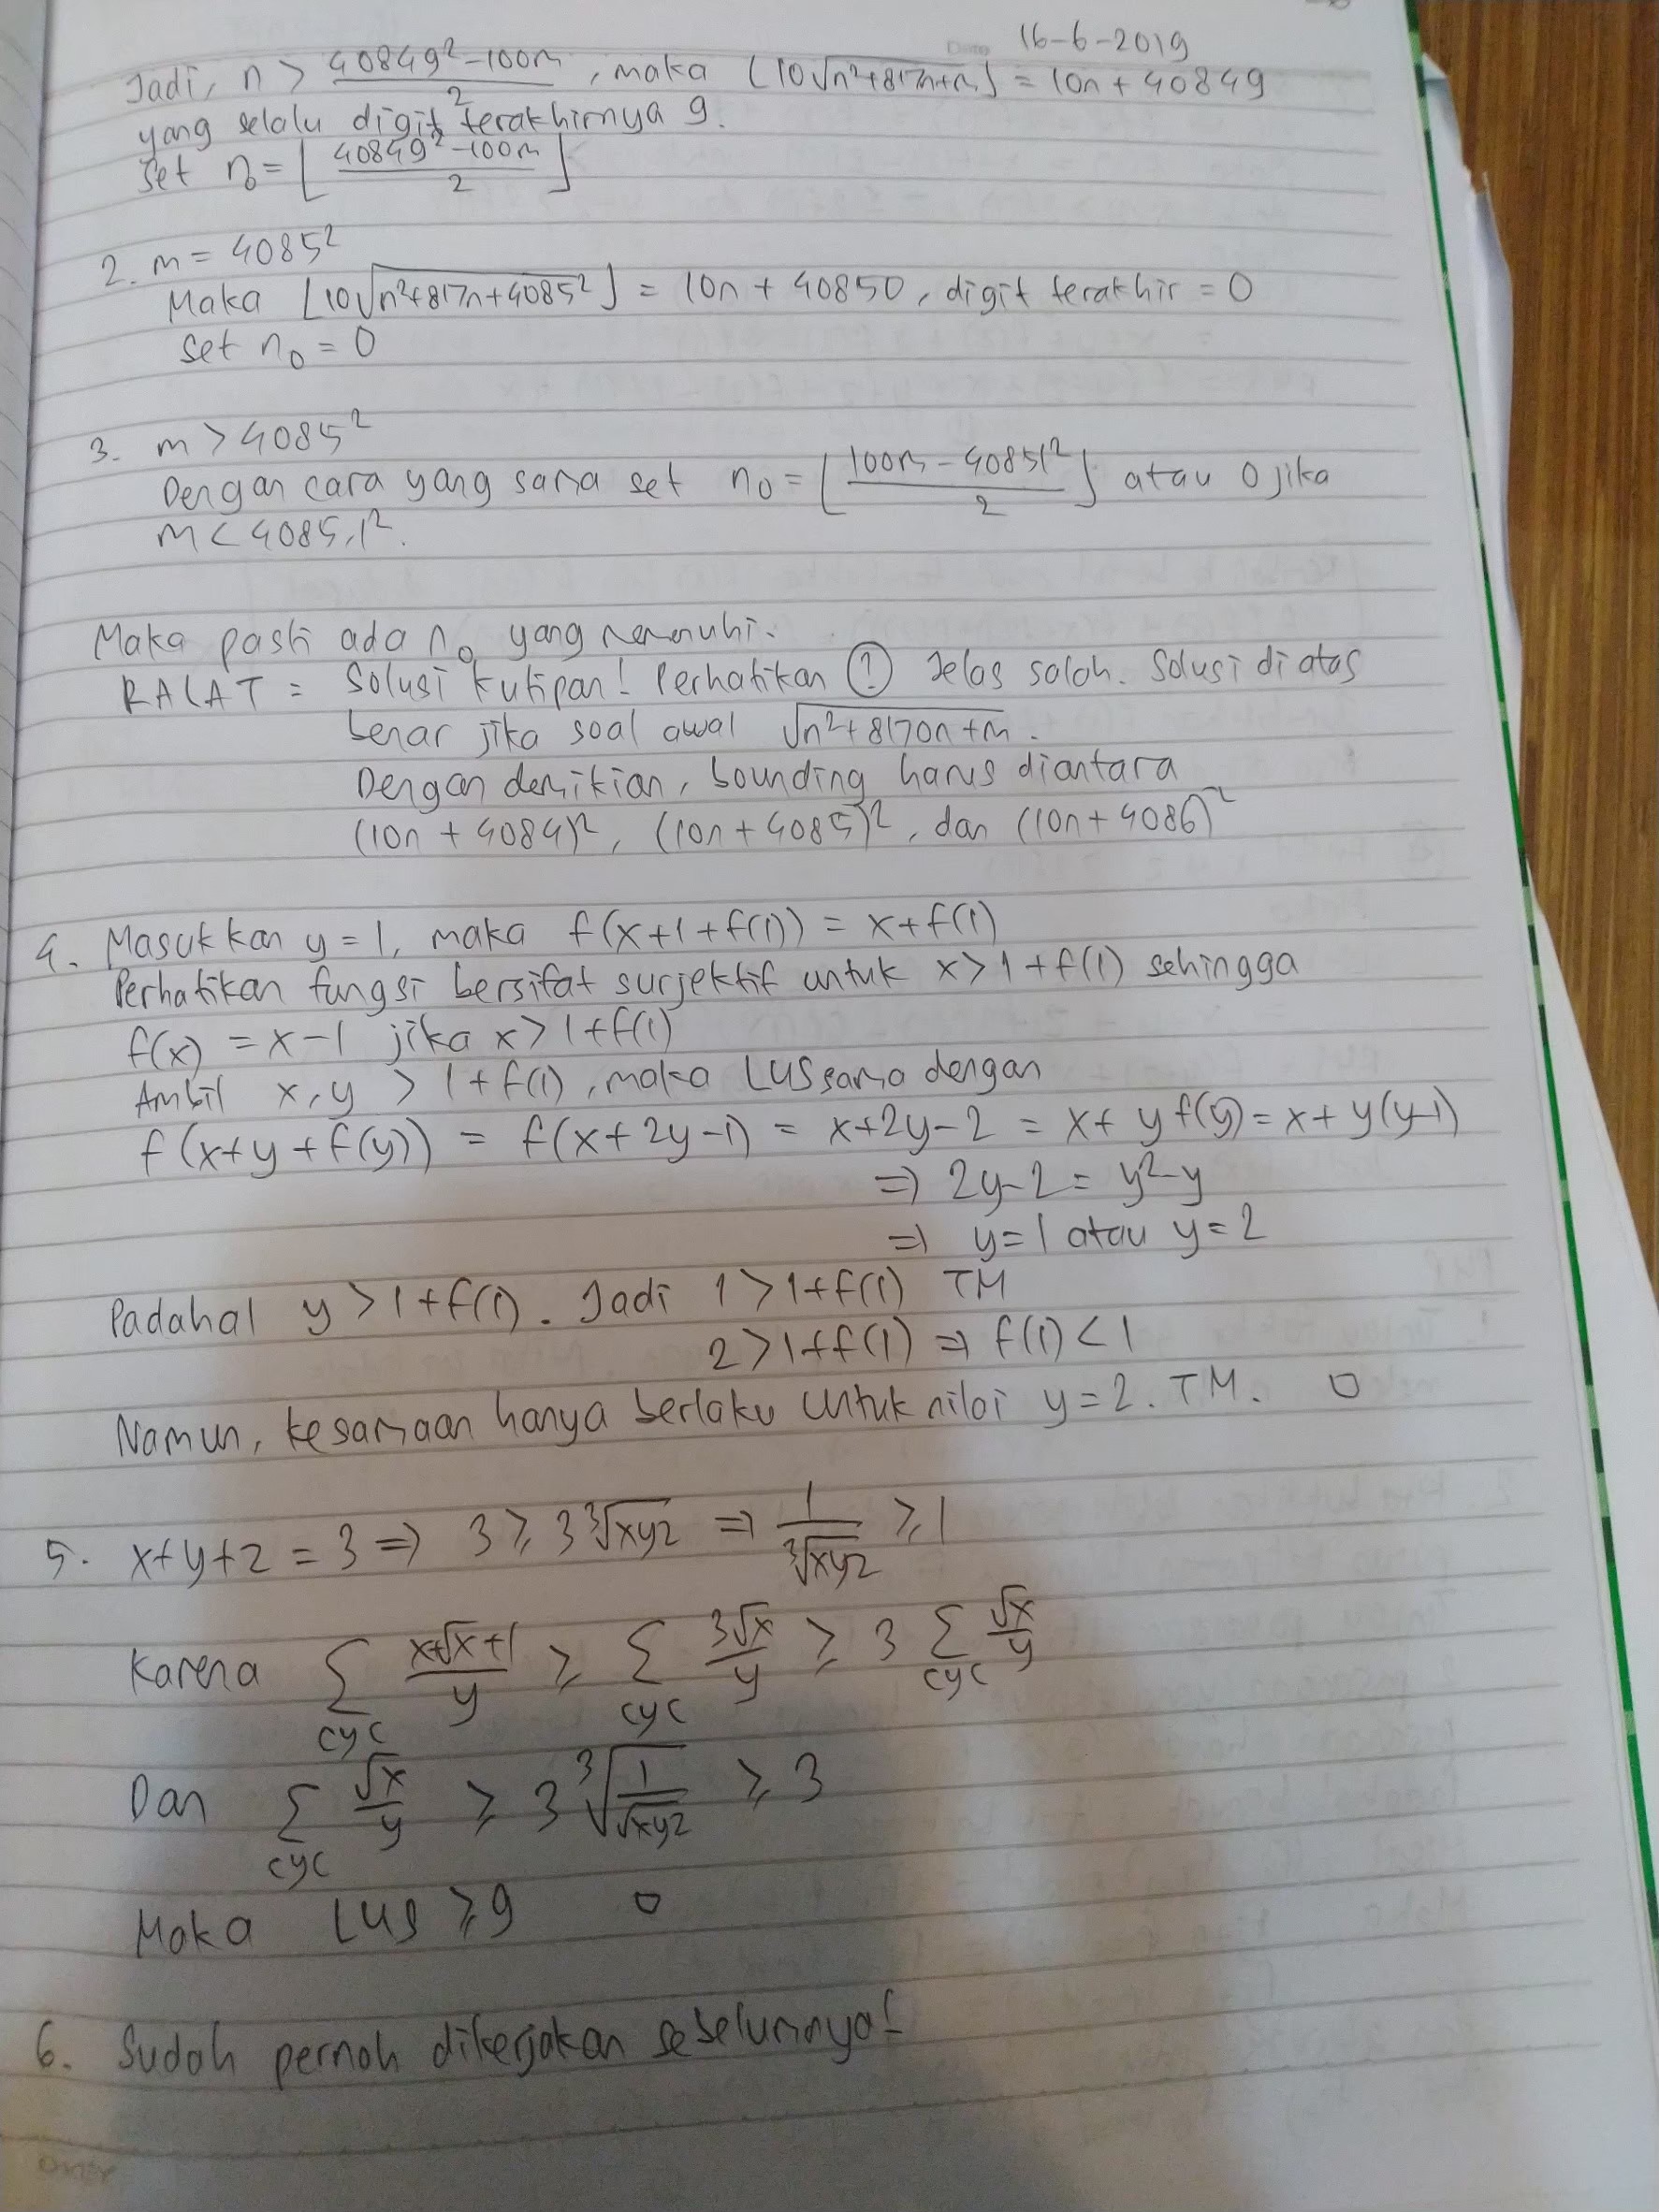 Date 16-6-2019
Jadi, n > (40849² - 100m)/2, maka ⌊10√(n²+817n+m)⌋ = 10n + 40849
yang selalu digit terakhirnya 9.
Set n₀ = ⌊(40849² - 100m)/2⌋
2. m = 4085²
Maka ⌊10√(n²+817n+4085²)⌋ = 10n + 40850, digit terakhir = 0
set n₀ = 0
3. m > 4085²
Dengan cara yang sama set n₀ = ⌊(100m - 40851²)/2⌋ atau 0 jika
m < 4085,1².
Maka pasti ada n₀ yang memenuhi.
RALAT = Solusi kutipan! Perhatikan ① Jelas salah. Solusi di atas
benar jika soal awal √(n²+8170n+m).
Dengan demikian, bounding harus diantara
(10n + 4084)², (10n + 4085)², dan (10n + 4086)²
4. Masukkan y = 1, maka f(x+1+f(1)) = x+f(1)
Perhatikan fungsi bersifat surjektif untuk x > 1+f(1) sehingga
f(x) = x-1 jika x > 1+f(1)
Ambil x, y > 1+f(1), maka LUS sama dengan
f(x+y+f(y)) = f(x+2y-1) = x+2y-2 = x+yf(y) = x+y(y-1)
⇒ 2y-2 = y²-y
⇒ y=1 atau y=2
Padahal y > 1+f(1). Jadi 1 > 1+f(1) TM
2 > 1+f(1) ⇒ f(1) < 1
Namun, kesamaan hanya berlaku untuk nilai y=2. TM. □
5. x+y+z = 3 ⇒ 3 ≥ 3∛(xyz) ⇒ 1/∛(xyz) ≥ 1
Karena Σcyc (x+√x+1)/y ≥ Σcyc 3√x/y ≥ 3 Σcyc √x/y
Dan Σcyc √x/y ≥ 3∛(1/√(xyz)) ≥ 3
Maka LUS ≥ 9 □
6. Sudah pernah dikerjakan sebelumnya!